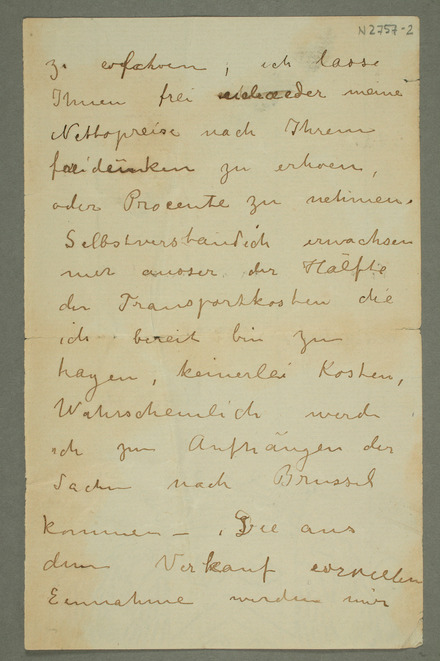 N2757-2
zu erfahren, ich lasse
Ihnen frei entweder meine
Nettopreise nach Ihrem
gutdünken zu erhöen,
oder Procente zu nehmen.
Selbstverständlich erwachsen
mir ausser der Hälfte
der Transportkosten die
ich bereit bin zu
tragen, keinerlei Kosten,
Wahrscheinlich werde
ich zum Aufhängen der
Sachen nach Brüssel
kommen – Die aus
dem Verkauf
Einnahme werden mir